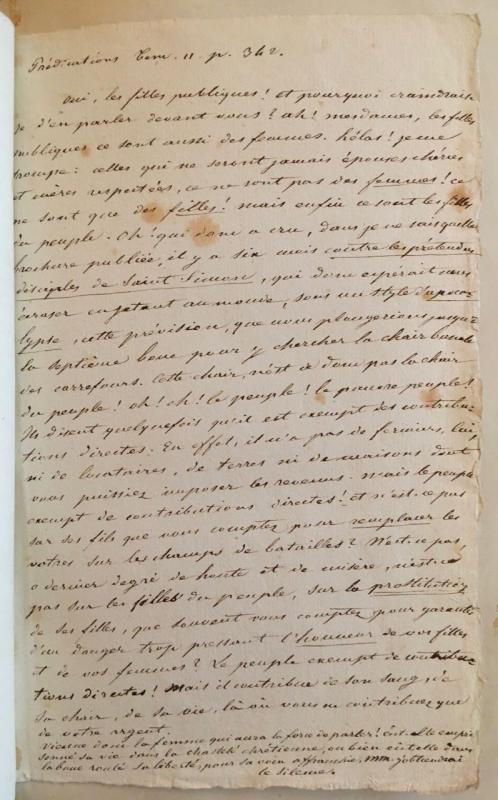 Prédications Tom. II. p. 342.
Oui, les filles publiques! et pourquoi craindrais-
je d'en parler devant vous? ah! mesdames, les filles
publiques ce sont aussi des femmes. hélas! je me
trompe: celles qui ne seront jamais épouses chéries
et mères respectées, ce ne sont pas des femmes! ce
ne sont que des filles! mais enfin ce sont les filles
du peuple. Oh! qui donc a cru, dans je ne sais quelle
brochure publiée, il y a six mois contre les prétendus
disciples de Saint Simon, qui donc espérait nous
écraser en jetant au monde, sous un style d'apoca-
lypse, cette prévision, que nous plongerions jusqu'à
la septième boue pour y chercher la chair banale
des carrefours. Cette chair, n'est ce donc pas la chair
du peuple! oh! oh! le peuple! le pauvre peuple!
Ils disent quelquefois qu'il est exempt des contribu-
tions directes. En effet, il n'a pas de fermiers, lui,
ni de locataires, de terres ni de maisons dont
vous puissiez imposer les revenus. mais le peuple
exempt de contributions directes! et n'est-ce pas
sur ses fils que vous comptez pour remplacer les
vôtres sur les champs de batailles? N'est-ce pas,
o dernier degré de honte et de misère, n'est-ce
pas sur les filles du peuple, sur la prostitution
de ses filles, que souvent vous comptez pour garantir
d'un danger trop pressant l'honneur de vos filles
et de vos femmes? Le peuple exempt de contribu-
tions directes! Mais il contribue de son sang, de
sa chair, de sa vie, là où vous ne contribuez que
de votre argent.
Vienne donc la femme qui aura la force de parler! eut-elle empri-
sonné sa vie dans la chasteté chrétienne, ou bien eut-elle dans
la boue roulé sa liberté, pour sa voix affranchie, moi j'obtiendrai
le silence.